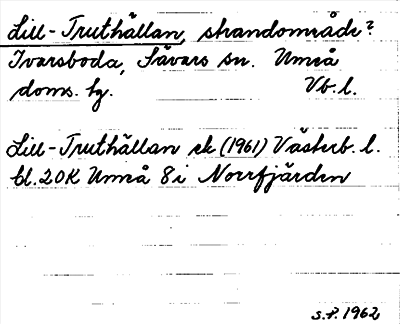 Lill-Truthällan, strandområde?
Ivarsboda, Sävars sn. Umeå
doms. hg. Vb. l.
Lill-Truthällan ek (1961) Västerb. l.
bl. 20K Umeå 8i Norrfjärden
S.F. 1962